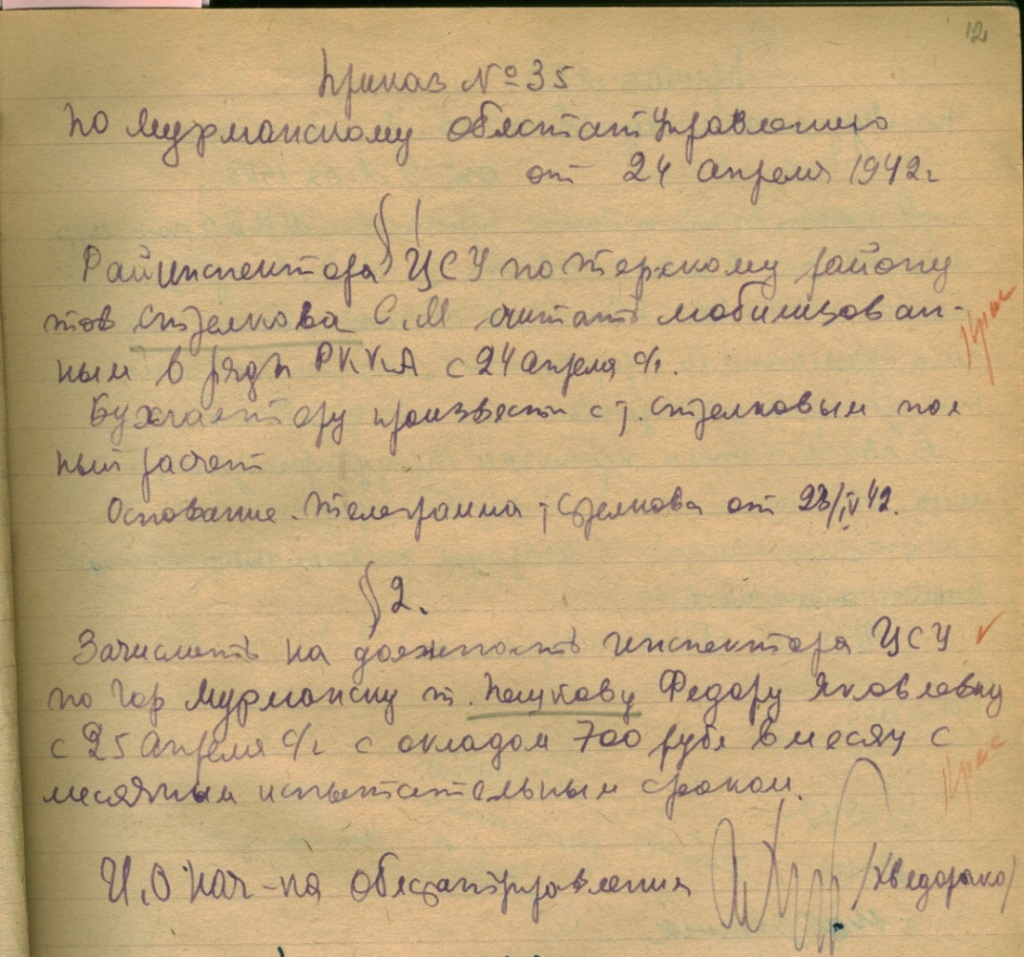 12
Приказ № 35
по Мурманскому облстатуправлению
от 24 апреля 1942г
§ 1
Райинспектора ЦСУ по Терскому району
тов Стрелкова С.М считать мобилизован-
ным в ряды РККА с 24 апреля с/г.
Бухгалтеру произвести с т. Стрелковым пол
ный расчет
Основание. Телеграмма т Стрелкова от 23/IV 42.
§ 2.
Зачислить на должность инспектора ЦСУ
по гор Мурманску т. Федору Яковлевну
с 25 апреля с/г с окладом 700 руб в месяц с
месячным испытательным сроком.
И.О Нач-ка облстатуправления /Хведорако/